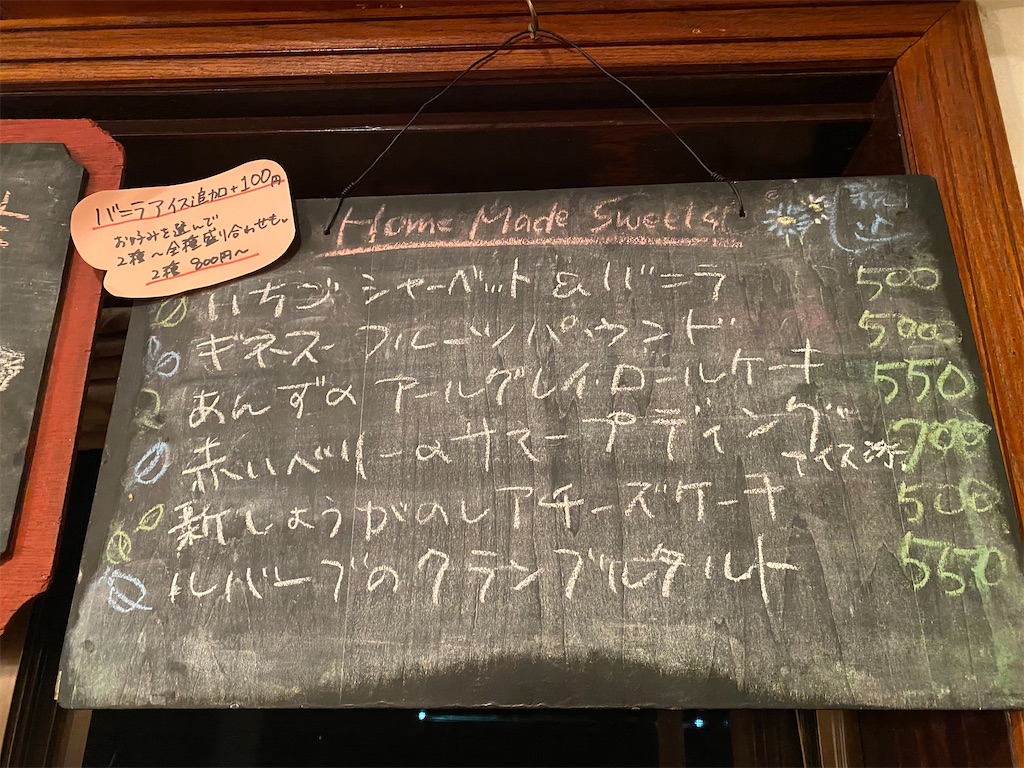 バニラアイス追加+100円
お好みを選んで
2種~全種盛り合わせも。
2種 800円~
Home Made Sweets
税込
いちごシャーベット&バニラ 500
ギネスフルーツパウンド 500
あんずのアールグレイ・ロールケーキ 550
赤いベリーのサマープディング アイス添 700
新しょうがのレアチーズケーキ 500
ルバーブのクランブルタルト 550